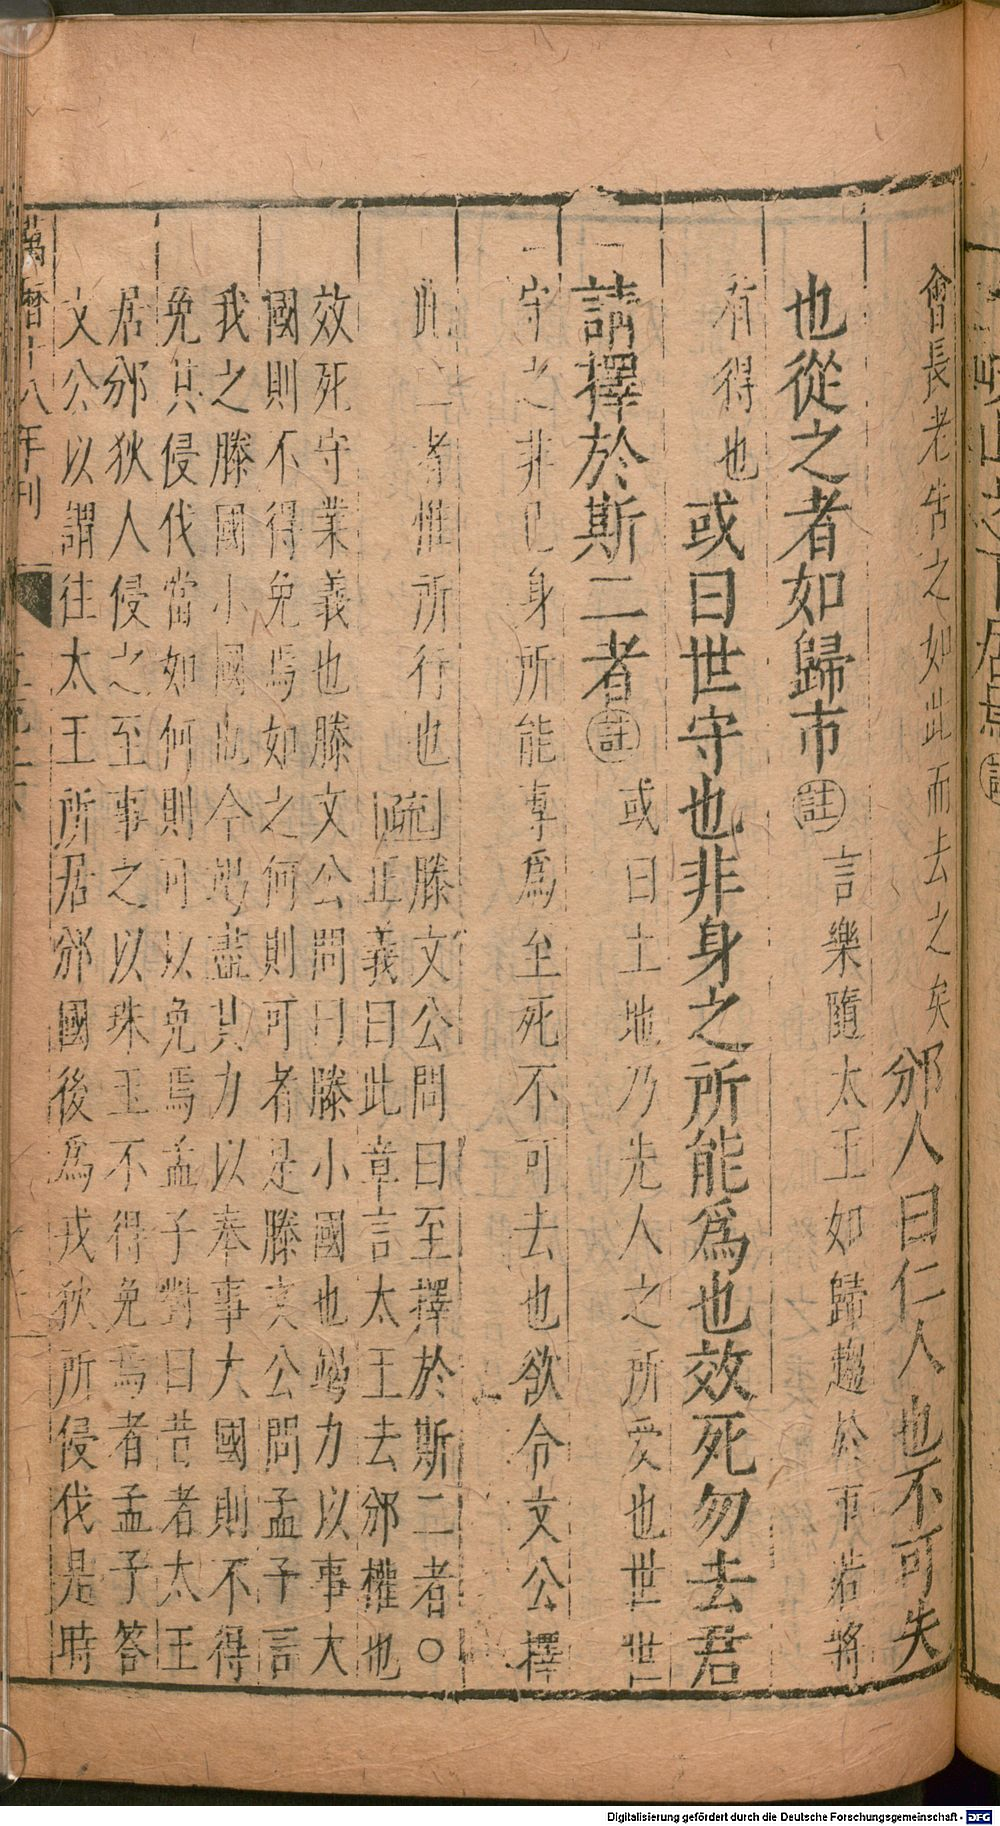 會長老告之如此而去之矣邠人曰仁人也不可失
也從之者如歸市註言樂隨太王如歸趨於市若將
有得也或曰世守也非身之所能爲也效死勿去君
請擇於斯二者註或曰土地乃先人之所愛也世世
守之非己身所能專爲至死不可去也欲令文公擇
此二者惟所行也疏滕文公問曰至擇於斯二者○
正義曰此章言太王去邠權也
效死守業義也滕文公問曰滕小國也竭力以事大
國則不得免焉如之何則可者是滕文公問孟子言
我之滕國小國也今竭盡其力以奉事大國則不得
免其侵伐當如何則可以免焉孟子對曰昔者太王
居邠狄人侵之至事之以珠玉不得免焉者孟子答
文公以謂往太王所居邠國後爲戎狄所侵伐是時
萬曆十八年刊
Digitalisierung gefördert durch die Deutsche Forschungsgemeinschaft - DFG